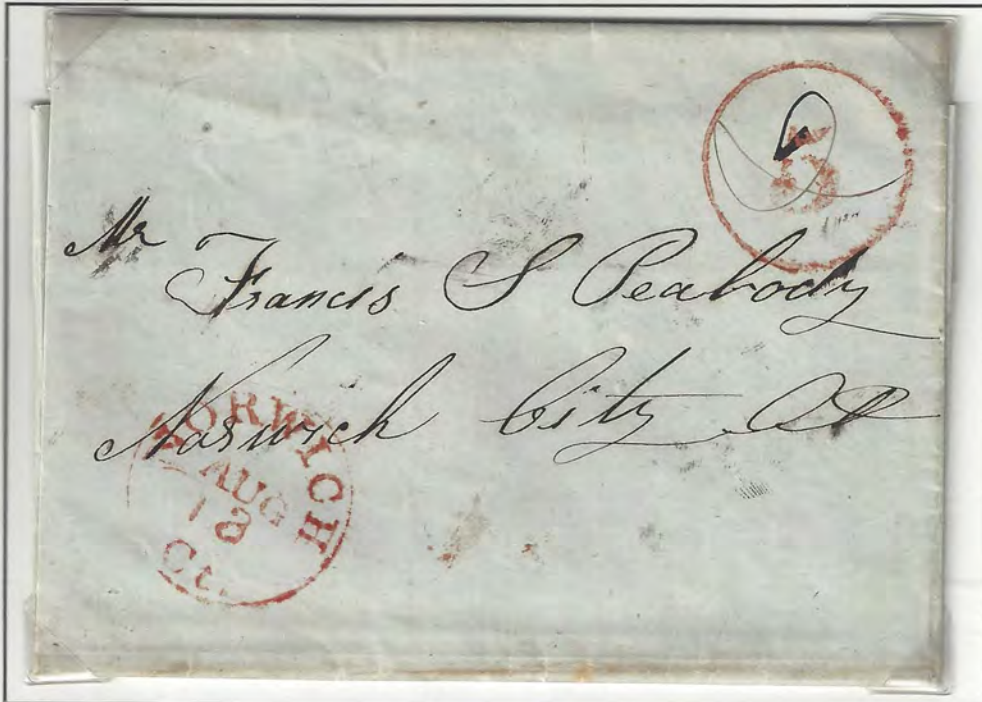 5
Mr
Francis S Peabody
Norwich City Ct
NORWICH
AUG
18
Ct.